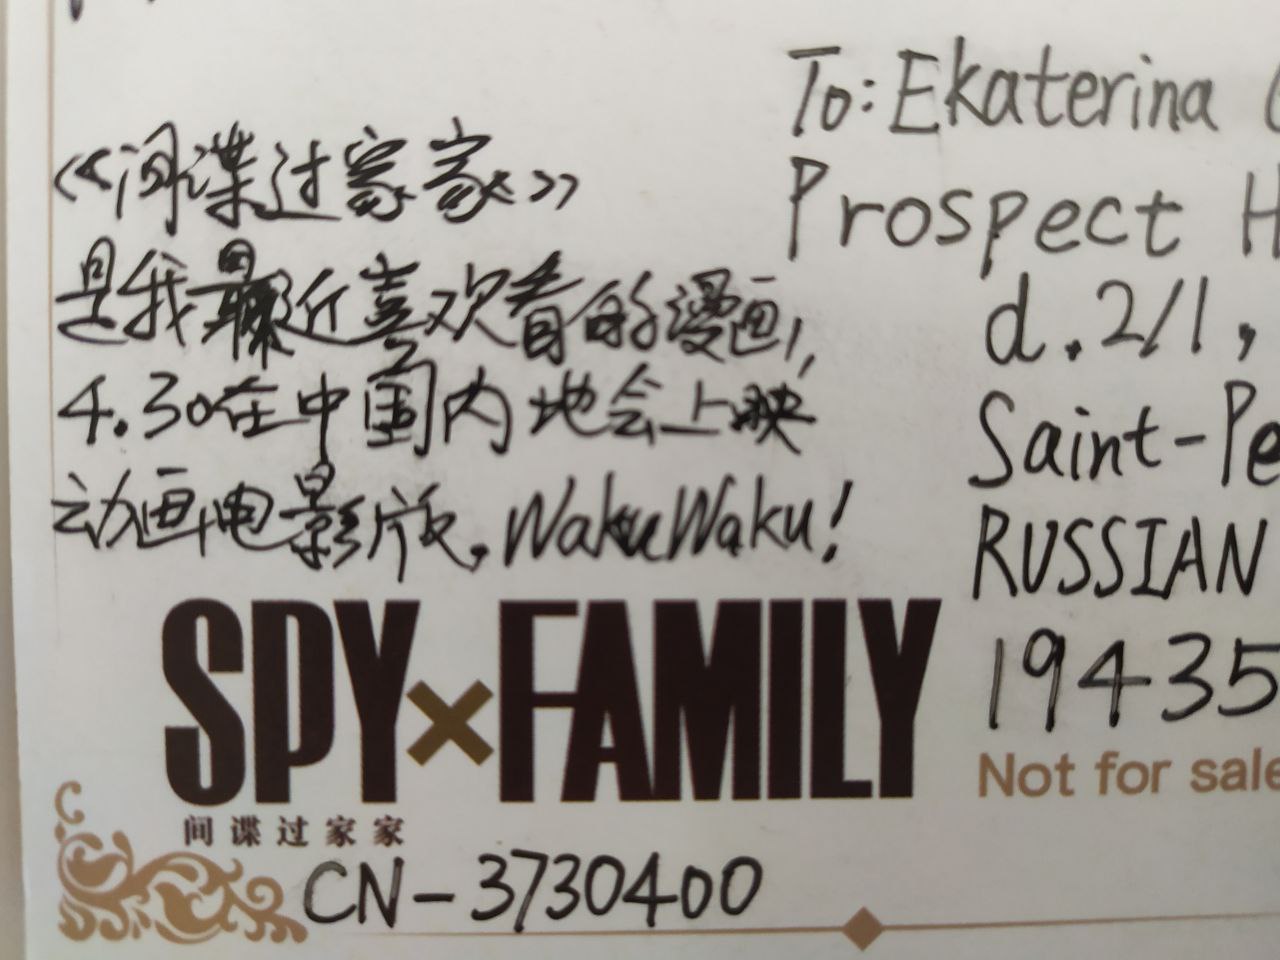 《间谍过家家》
是我最近喜欢看的漫画,
4.30在中国内地会上映
动画电影版。WakuWaku!
To: Ekaterina
Prospect
d.2/1,
Saint-Pe
RUSSIAN
19435
SPY×FAMILY
间谍过家家
Not for sale
CN-3730400